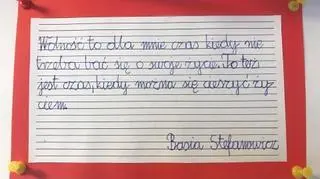 Wolność to dla mnie czas kiedy nie
trzeba bać się o swoje życie. To też
jest czas, kiedy można się cieszyć ży-
ciem.
Basia Stefanowicz